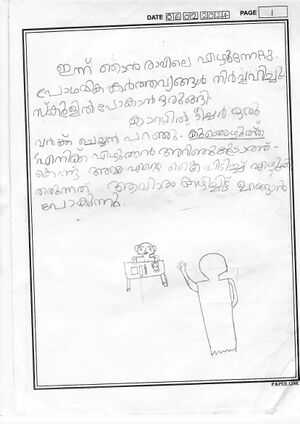 DATE 06 02 2024 PAGE 1
ഇന്ന് ഞാൻ രാവിലെ എഴുന്നേറ്റു.
പ്രാഥമിക കർത്തവ്യങ്ങൾ നിർവ്വഹിച്ചു.
സ്കൂളിൽ പോകാൻ ഒരുങ്ങി.
ടീച്ചർ ഒരു
വർക്ക് ചെയ്യാൻ പറഞ്ഞു.
എനിക്ക് എഴുതാൻ അറിഞ്ഞുകൂടാത്തത്-
കൊണ്ട് അമ്മ എന്റെ കൈ പിടിച്ച് എഴുതി
തരുന്നത്. ആഹാരം കഴിച്ചിട്ട് ഉറങ്ങാൻ
പോകുന്നു.
PAPER LINE